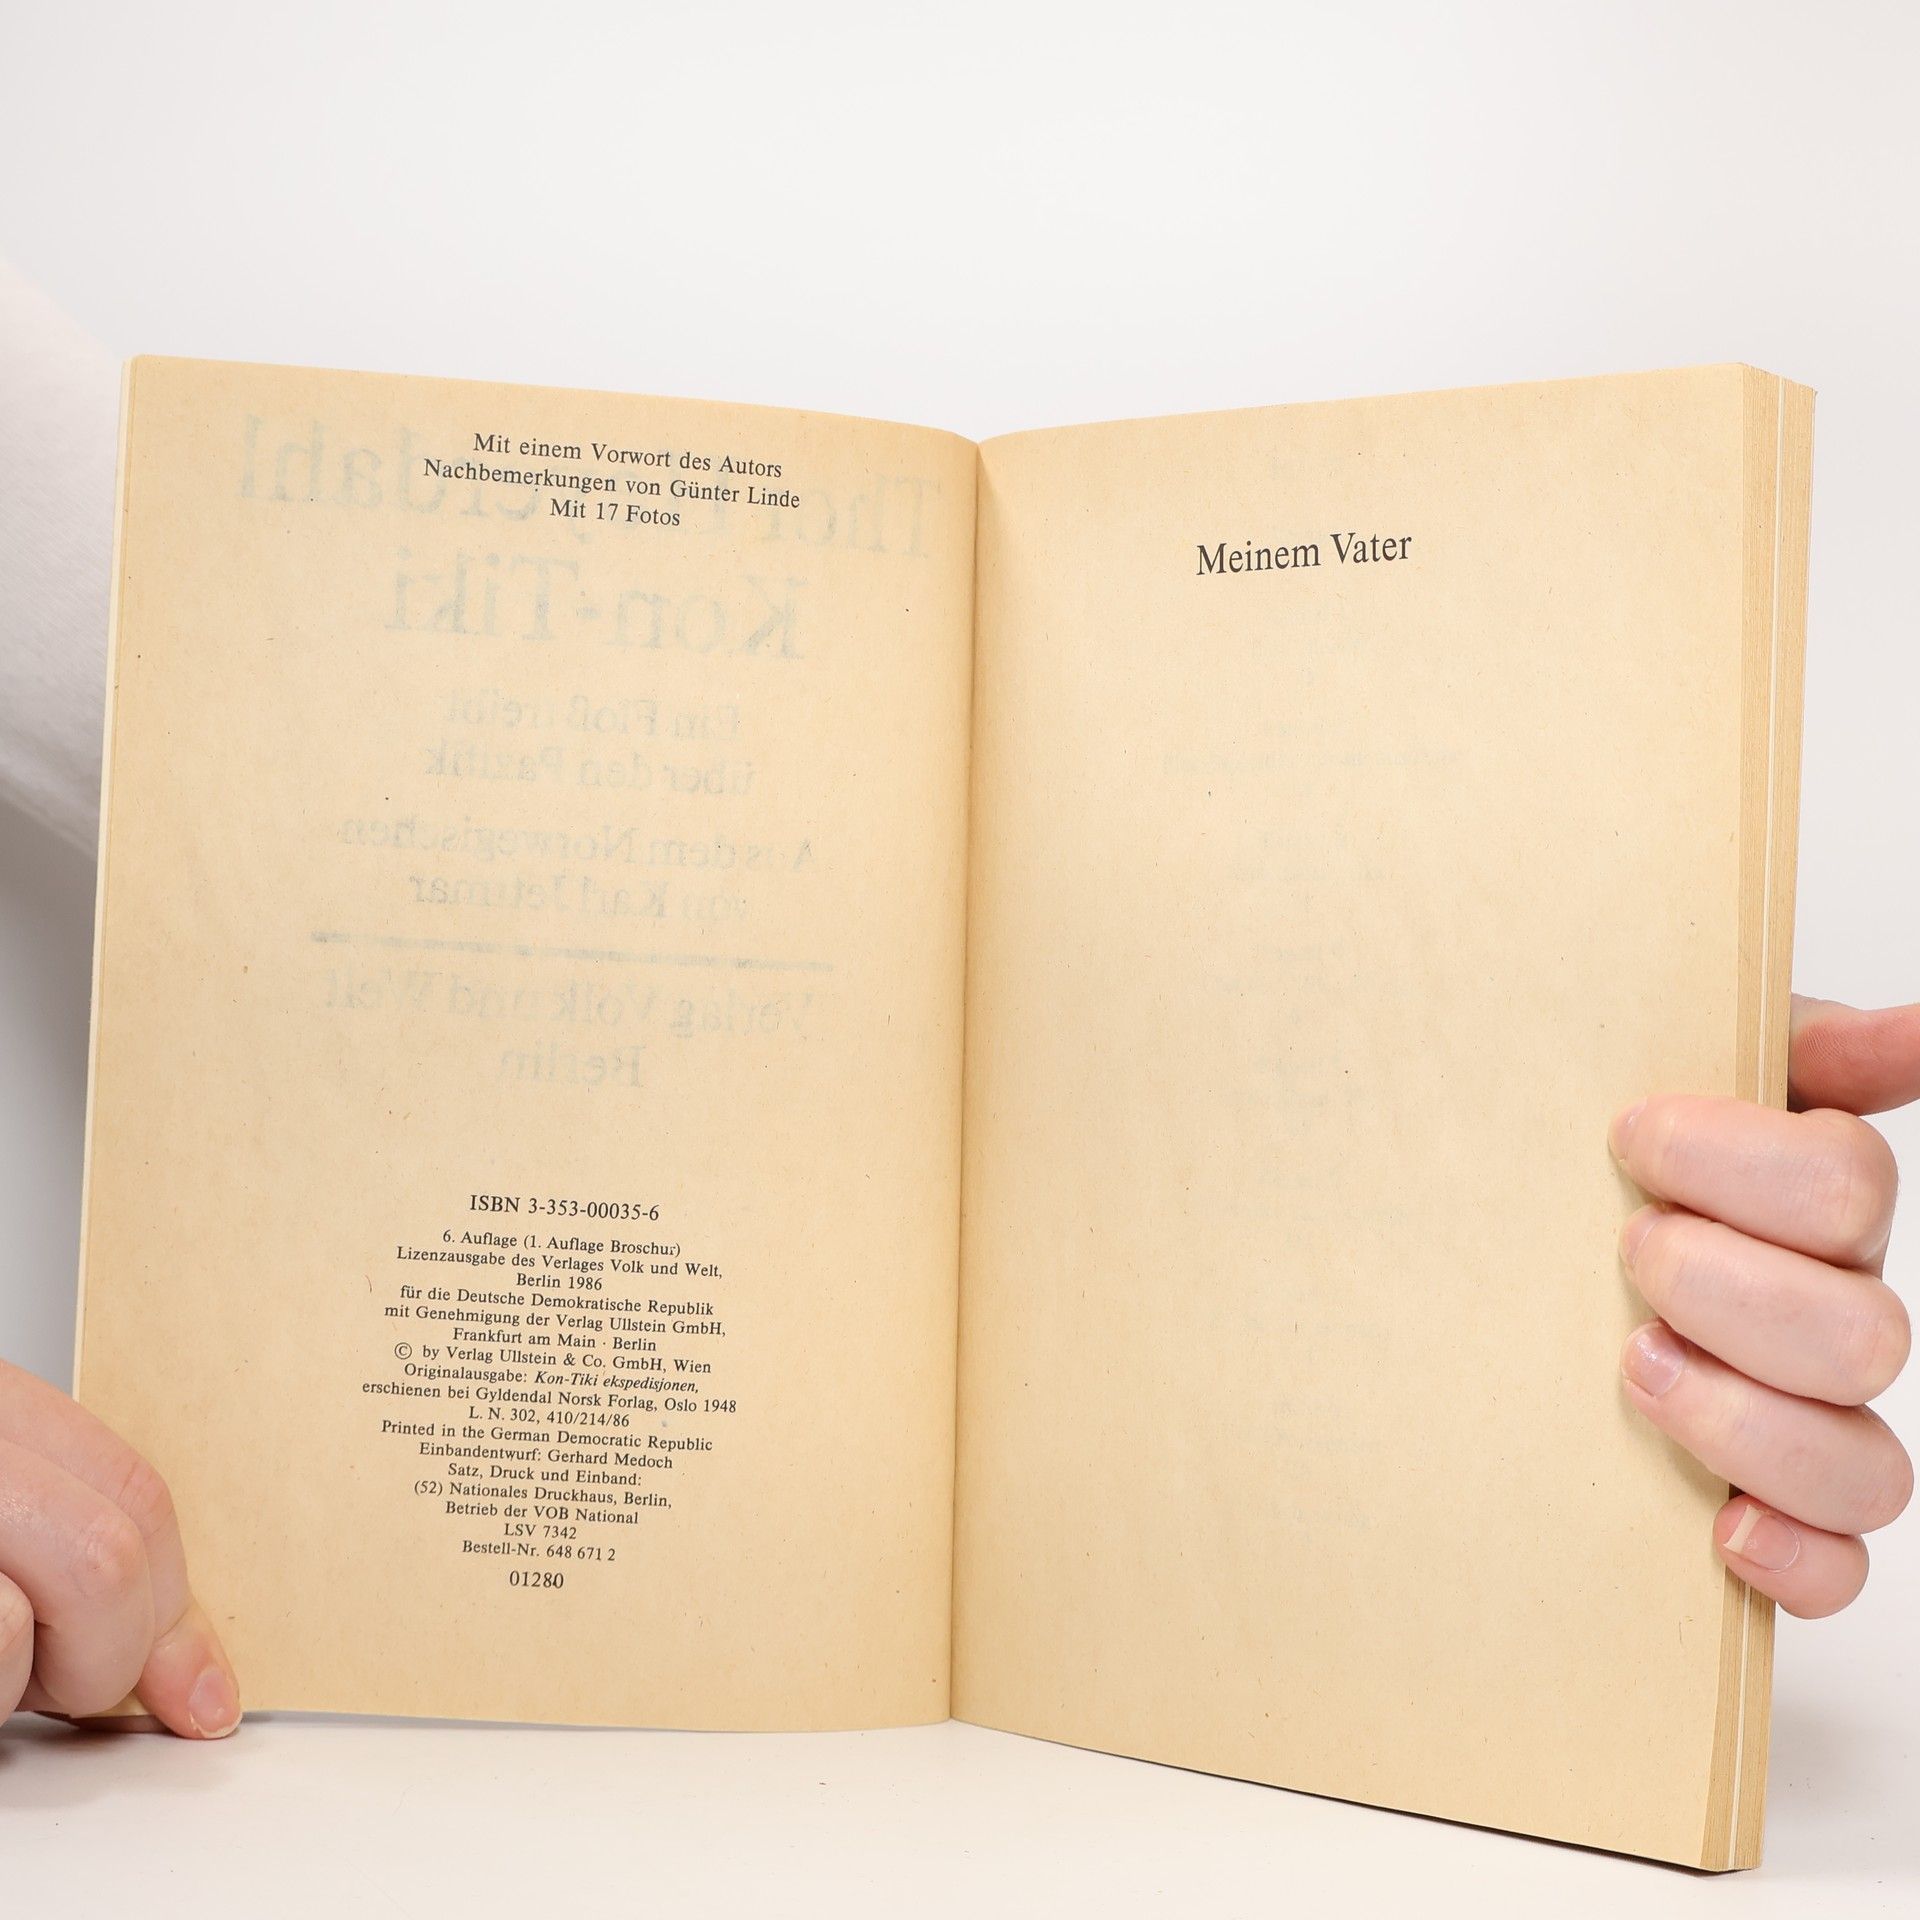 Mit einem Vorwort des Autors
Nachbemerkungen von Günter Linde
Mit 17 Fotos
Thor Heyerdahl
Kon-Tiki
Ein Floß treibt
über den Pazifik
Aus dem Norwegischen
von Karl Jettmar
Verlag Volk und Welt
Berlin
ISBN 3-353-00035-6
6. Auflage (1. Auflage Broschur)
Lizenzausgabe des Verlages Volk und Welt,
Berlin 1986
für die Deutsche Demokratische Republik
mit Genehmigung der Verlag Ullstein GmbH,
Frankfurt am Main · Berlin
© by Verlag Ullstein & Co. GmbH, Wien
Originalausgabe: Kon-Tiki ekspedisjonen,
erschienen bei Gyldendal Norsk Forlag, Oslo 1948
L. N. 302, 410/214/86
Printed in the German Democratic Republic
Einbandentwurf: Gerhard Medoch
Satz, Druck und Einband:
(52) Nationales Druckhaus, Berlin,
Betrieb der VOB National
LSV 7342
Bestell-Nr. 648 671 2
01280
Meinem Vater